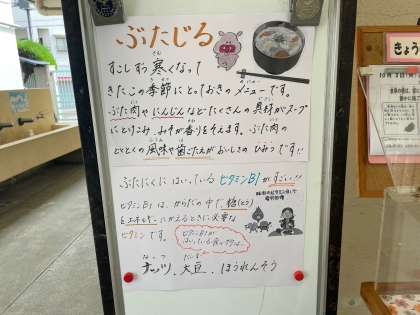 ぶたじる
すこしずつ寒くなって
きたこの季節にとっておきのメニューです。
ぶた肉やにんじんなどたくさんの具材がスープ
にとけこみ、みそが香りをそえます。ぶた肉の
どくとくの風味や歯ごたえがおいしさのひみつです!!
ぶたにくにはいっているビタミンB1がすごい!!
ビタミンB1は、からだの中で、糖(とう)
をエネルギーにかえるときに必要な
ビタミンです。
ビタミンB1が
はいっている食べ物は…
ナッツ、大豆、ほうれんそう
きょう